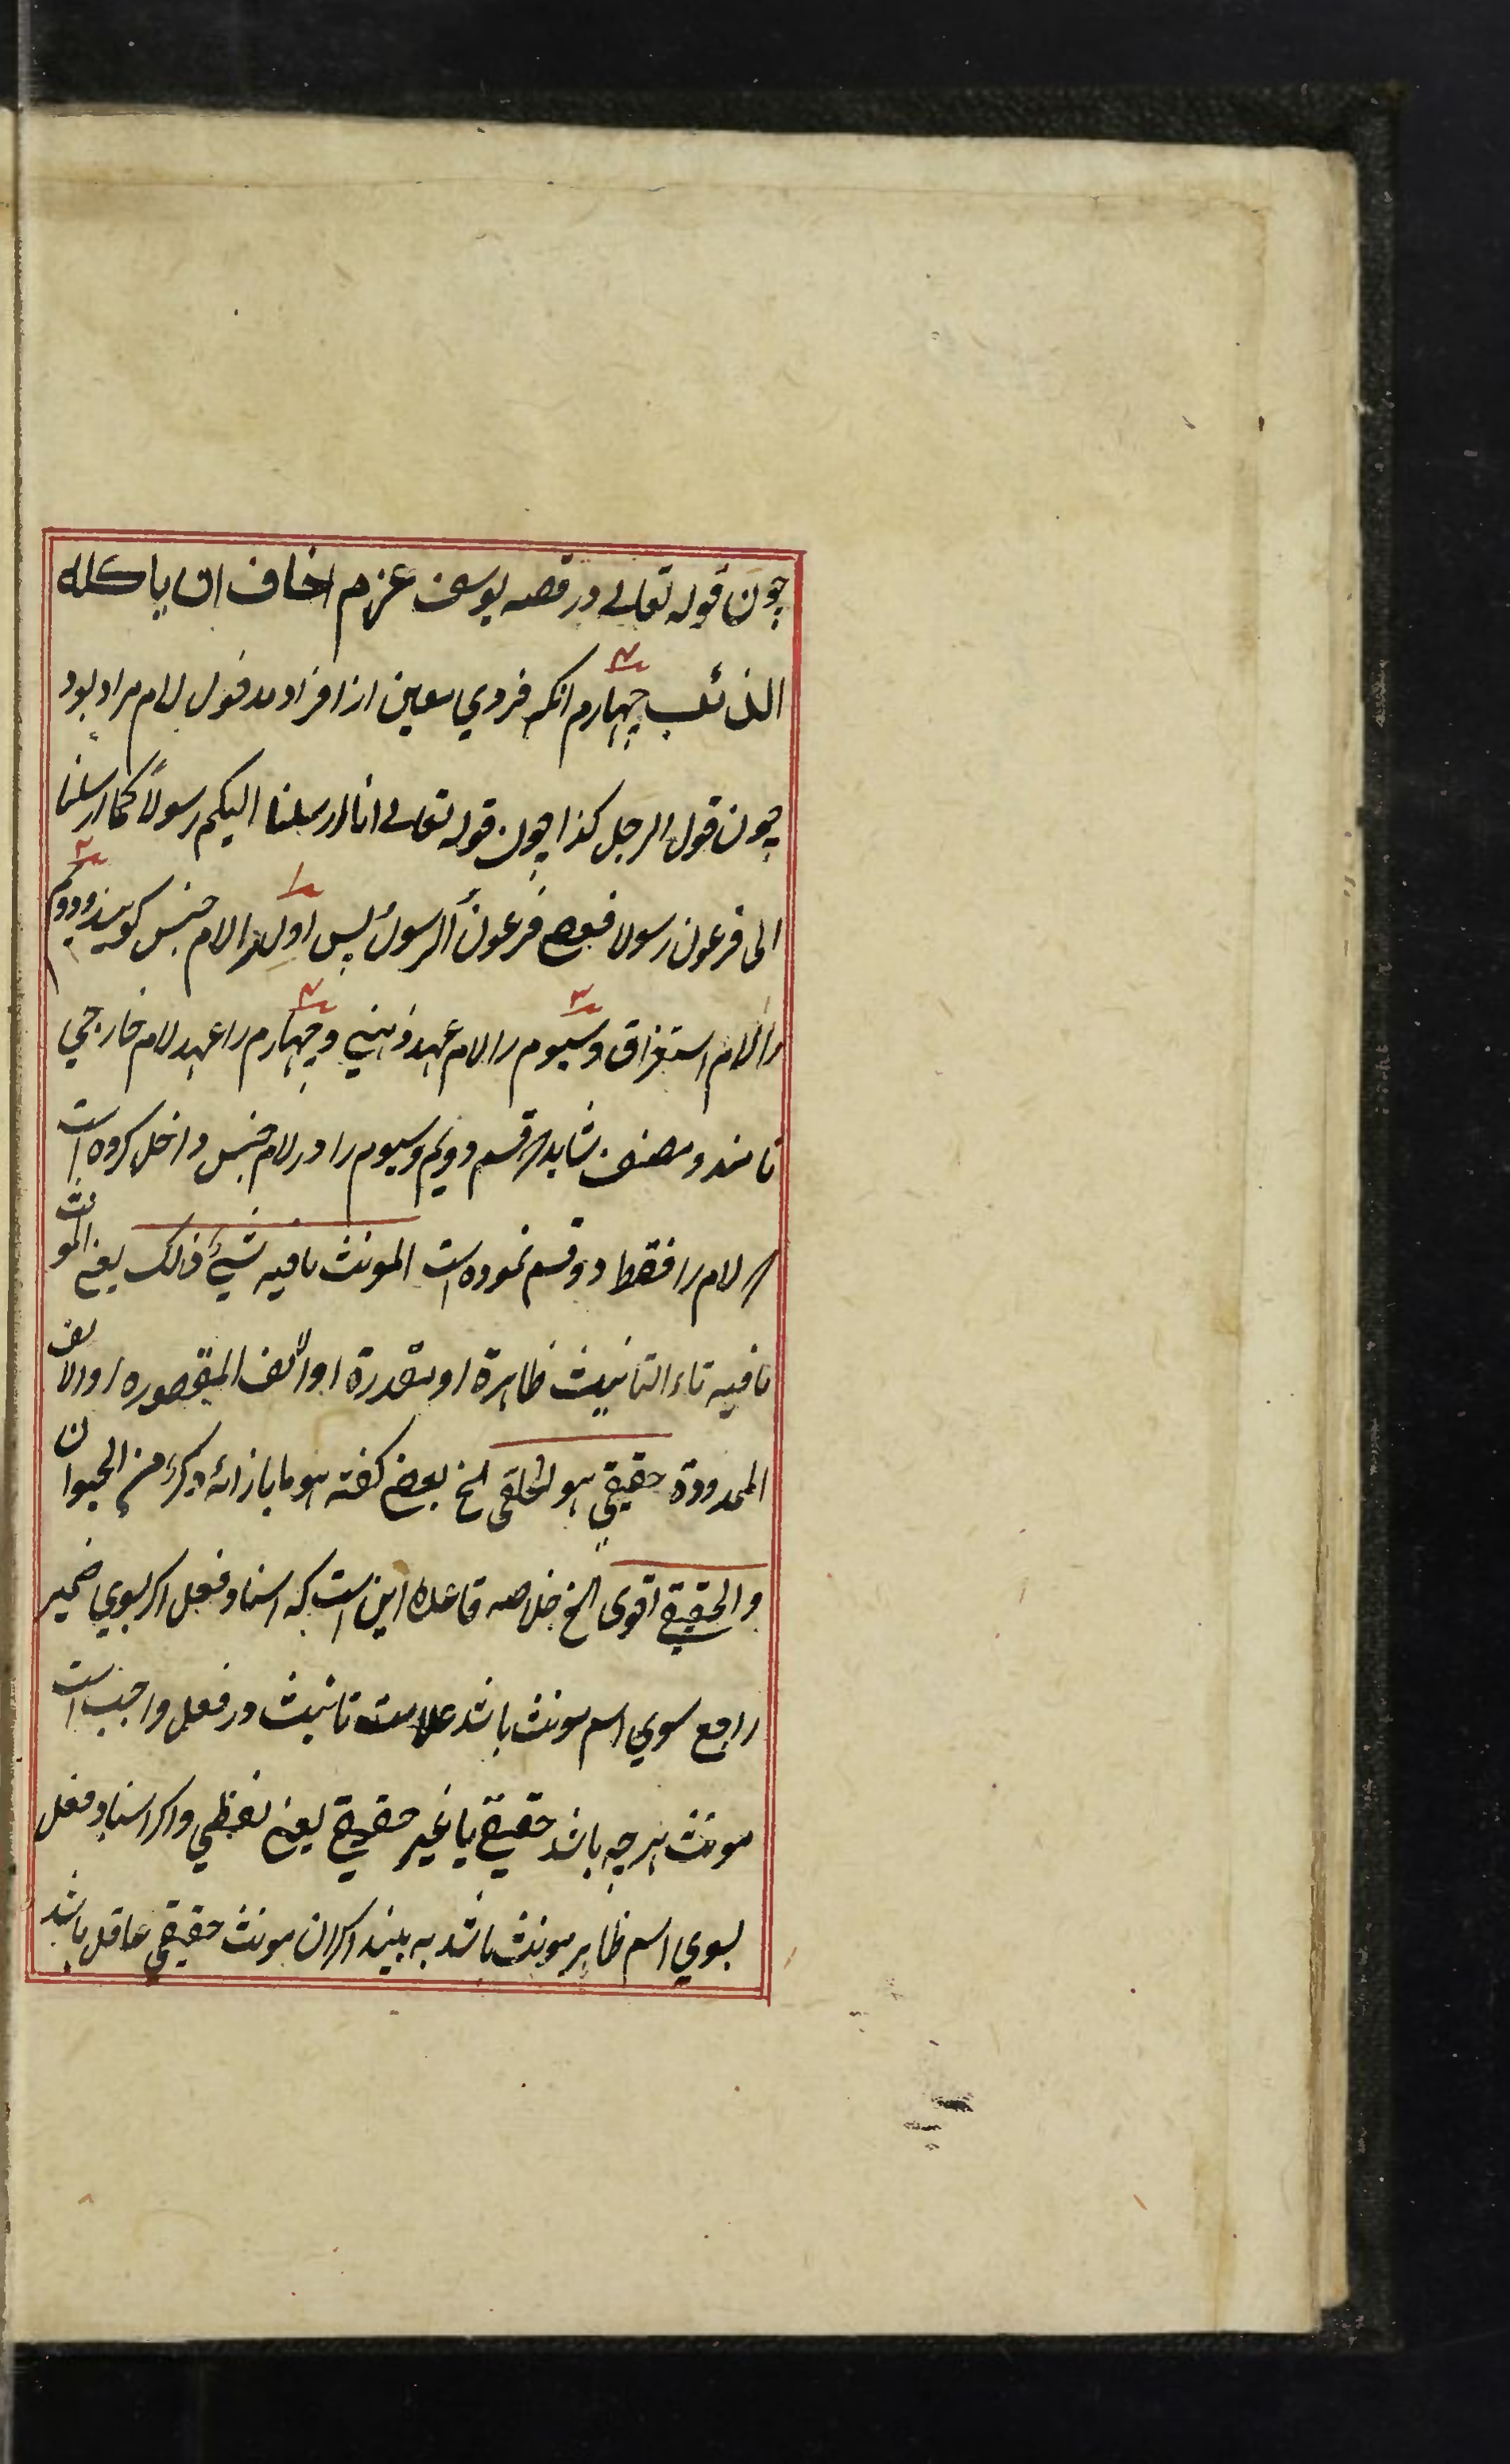 چون قوله تعالی در قصه یوسف عزم اخاف ان یاکله
الذئب چهارم انکه فردی معین از افراد مدخول لام مراد بود
چون قول الرجل کذا چون قوله تعالی انا ارسلنا الیکم رسولاً کما ارسلنا
الی فرعون رسولا فعصی فرعونُ الرسولَ پس اول را لام جنس کویند و دویم
را لام استغراق و سیوم را لام عهد ذهنی و چهارم را عهد لام خارجی
نامند و مصنف شاید قسم دویم و سیوم را در لام جنس داخل کرده است
لام را فقط دو قسم نموده است المونث مافیه شیٔ ذلک یعنی المونث
مافیه تاء التانیث ظاهرة او مقدرة او الالف المقصوره او الالف
الممدودة حقیقی هو الخلقی الخ بعضی کفته هو ما بازائه ذکر من الحیوان
والحقیقی اقوی الخ خلاصه قاعده این است که اسناد فعل اکر بسوی ضمیر
راجع سوی اسم مونث باشد علامت تانیث در فعل واجب است
مونث هرچه باشد حقیقی یا غیر حقیقی یعنی لفظی و اکر اسناد فعل
بسوی اسم ظاهر مونث باشد به بیند اکر ان مونث حقیقی عاقل باشد